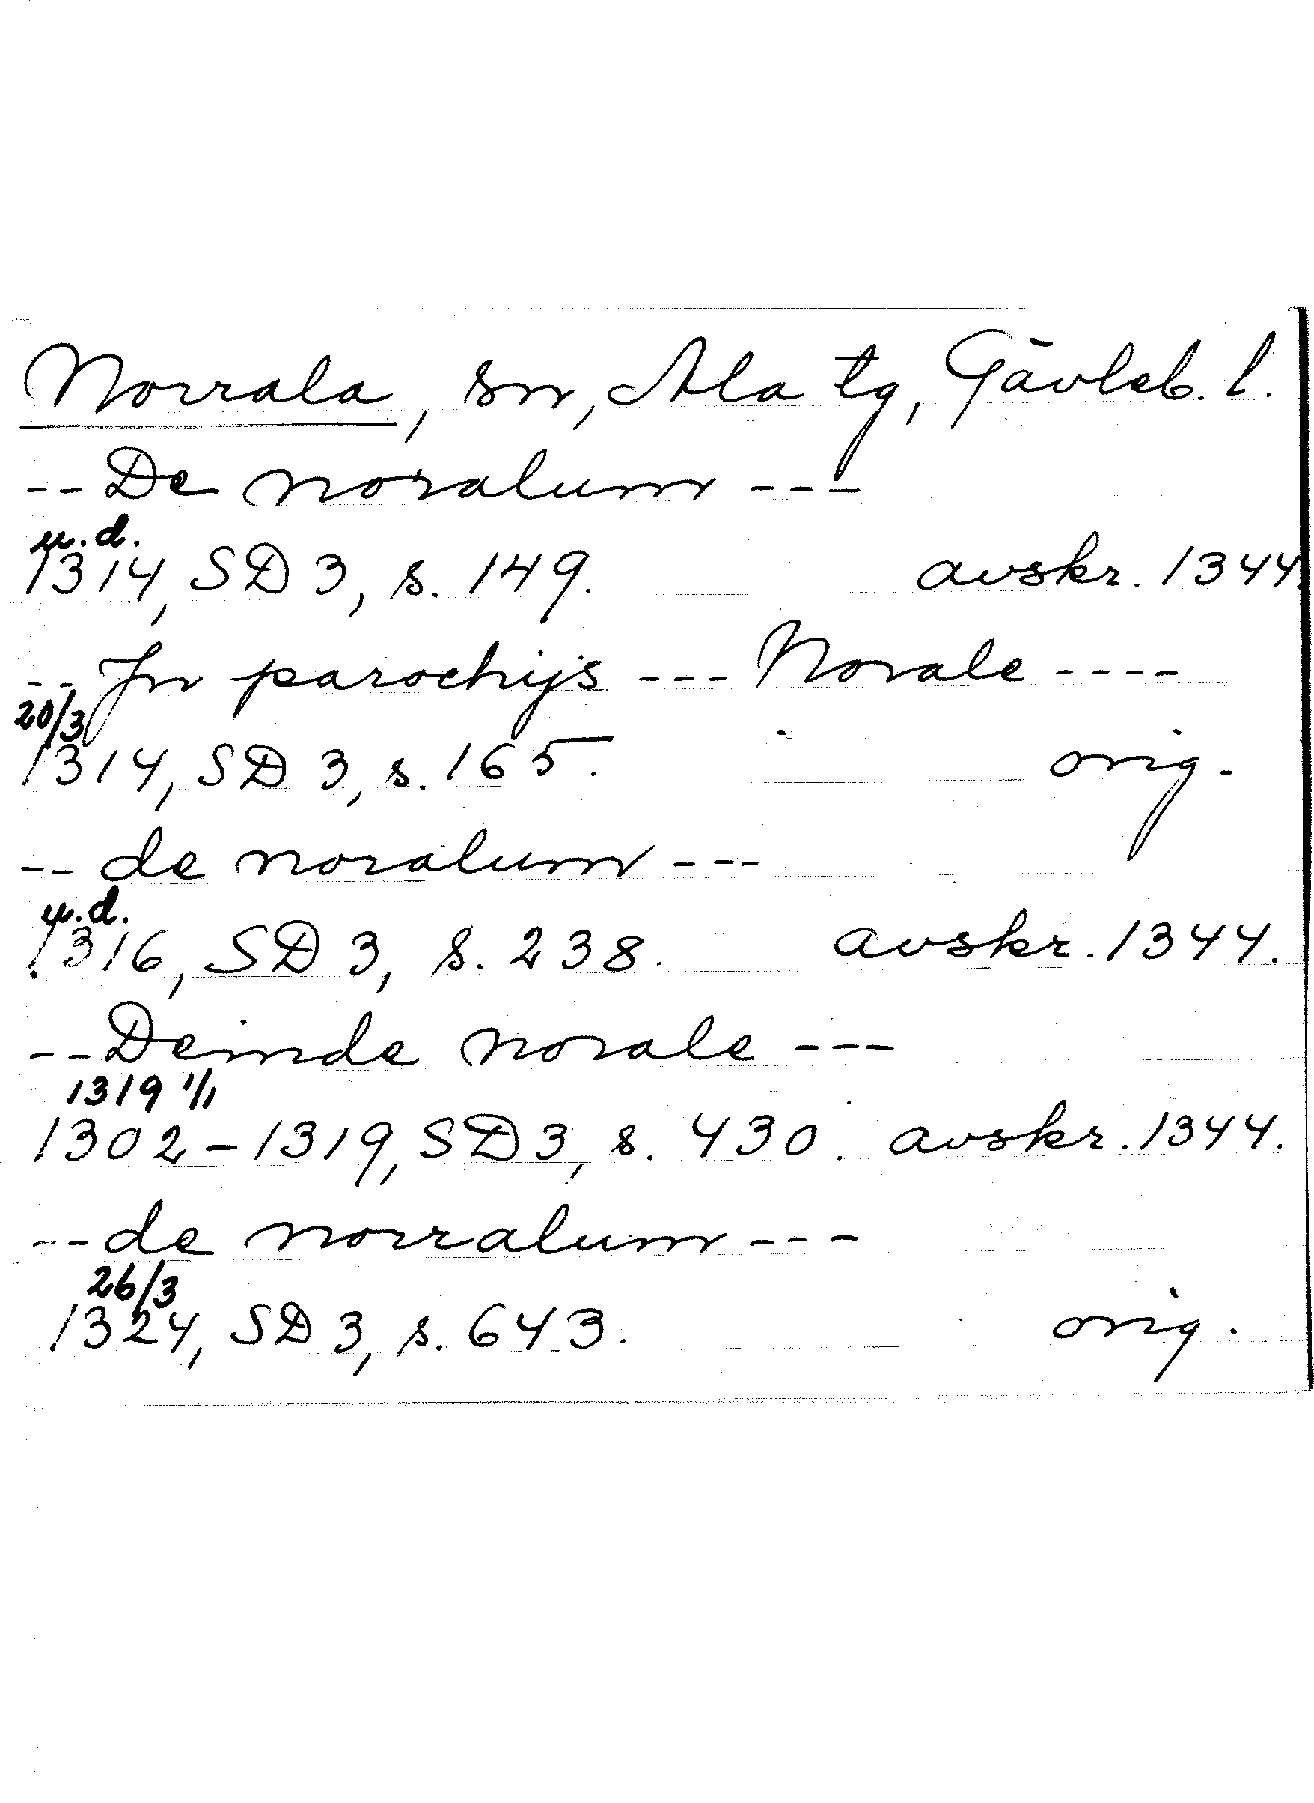 Norrala, sn, Ala tg, Gävleb. l.
-- De noralum ---
u.d.
1314, SD 3, s. 149. avskr. 1344.
-- In parochijs --- Norale ----
20/3
1314, SD 3, s. 165. orig.
-- de noralum ---
u.d.
1316, SD 3, s. 238. avskr. 1344.
-- Deinde norale ---
1319 1/1
1302-1319, SD 3, s. 430. avskr. 1344.
-- de norralum ---
26/3
1324, SD 3, s. 643. orig.